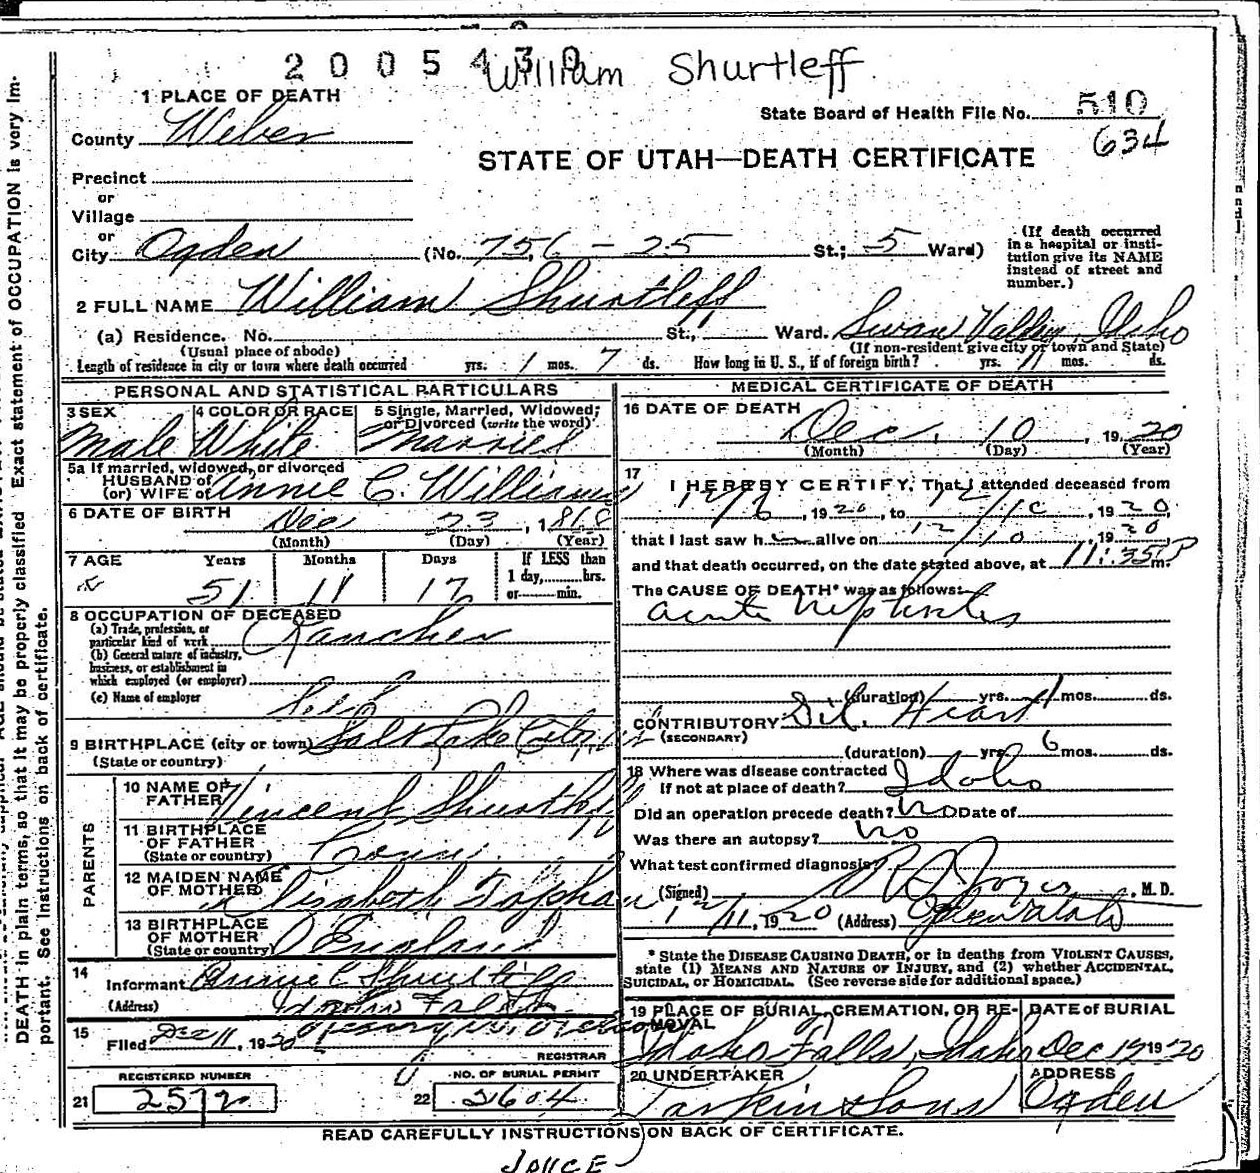 2005430
William Shurtleff
1 PLACE OF DEATH
State Board of Health File No. 510
634
County Weber
STATE OF UTAH—DEATH CERTIFICATE
Precinct
or
Village
or
City Ogden (No. 756 - 25 St.; 5 Ward)
(If death occurred in a hospital or institution give its NAME instead of street and number.)
2 FULL NAME William Shurtleff
(a) Residence. No. St., Ward. Swan Valley, Idaho
(Usual place of abode) (If non-resident give city or town and State)
Length of residence in city or town where death occurred yrs. 1 mos. 7 ds. How long in U. S., if of foreign birth? yrs. mos. ds.
PERSONAL AND STATISTICAL PARTICULARS
3 SEX 4 COLOR OR RACE 5 Single, Married, Widowed, or Divorced (write the word)
Male White Married
5a If married, widowed, or divorced
HUSBAND of
(or) WIFE of Annie C. Williams
6 DATE OF BIRTH Dec 23, 1868
(Month) (Day) (Year)
7 AGE Years Months Days If LESS than
1 day, hrs.
or min.
51 11 17
8 OCCUPATION OF DECEASED
(a) Trade, profession, or particular kind of work Rancher
(b) General nature of industry, business, or establishment in which employed (or employer)
(c) Name of employer Self
9 BIRTHPLACE (city or town) Salt Lake City
(State or country)
PARENTS
10 NAME OF FATHER Vincent Shurtleff
11 BIRTHPLACE OF FATHER
(State or country) Conn.
12 MAIDEN NAME OF MOTHER Elisabeth Topham
13 BIRTHPLACE OF MOTHER
(State or country) England
14
Informant Annie C Shurtliff
(Address) Idaho Falls
15
Filed Dec 11, 1920
REGISTRAR
REGISTERED NUMBER NO. OF BURIAL PERMIT
21 2572 22 2604
MEDICAL CERTIFICATE OF DEATH
16 DATE OF DEATH
Dec. 10, 1920
(Month) (Day) (Year)
17
I HEREBY CERTIFY, That I attended deceased from
12/6, 1920, to 12/10, 1920
that I last saw h alive on 12/10, 1920
and that death occurred, on the date stated above, at 11:35 P m.
The CAUSE OF DEATH* was as follows:
acute Nephritis
(duration) yrs. 1 mos. ds.
CONTRIBUTORY Dil. Heart
(SECONDARY)
(duration) yrs. 6 mos. ds.
18 Where was disease contracted
If not at place of death? Idaho
Did an operation precede death? no Date of
Was there an autopsy? no
What test confirmed diagnosis?
(Signed) M. D.
12/11, 1920 (Address) Ogden Utah
* State the DISEASE CAUSING DEATH, or in deaths from VIOLENT CAUSES,
state (1) MEANS AND NATURE OF INJURY, and (2) whether ACCIDENTAL,
SUICIDAL, or HOMICIDAL. (See reverse side for additional space.)
19 PLACE OF BURIAL, CREMATION, OR REMOVAL DATE of BURIAL
Idaho Falls, Idaho Dec 12 1920
20 UNDERTAKER ADDRESS
Larkin & Sons Ogden
READ CAREFULLY INSTRUCTIONS ON BACK OF CERTIFICATE.
JOYCE
DEATH in plain terms, so that it may be properly classified. Exact statement of OCCUPATION is very im-
portant. See instructions on back of certificate.